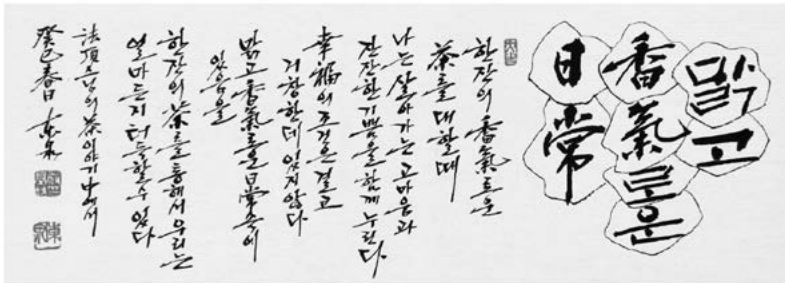 맑고
香氣로운
日常
한잔의 香氣로운
茶를 대할 때
나는 살아가는 고마움과
잔잔한 기쁨을 함께 누린다.
幸福의 조건은 결코
거창한데 있지 않다
맑고 香氣로운 日常 속에
있음을
한잔의 茶를 통해서 우리는
얼마든지 터득할 수 있다
法頂스님의 茶이야기 中에서
癸巳春日